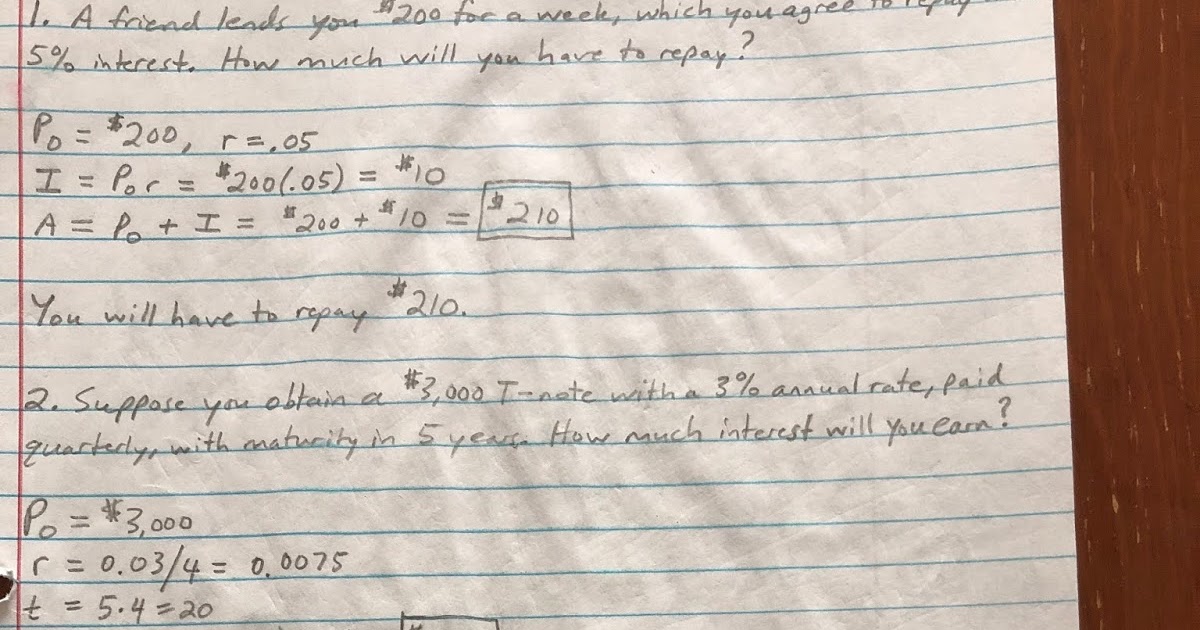 1. A friend lends you $200 for a week, which you agree to repay
5% interest. How much will you have to repay?
P₀ = $200, r = .05
I = P₀r = $200(.05) = $10
A = P₀ + I = $200 + $10 = $210
You will have to repay $210.
2. Suppose you obtain a $3,000 T-note with a 3% annual rate, paid
quarterly, with maturity in 5 years. How much interest will you earn?
P₀ = $3,000
r = 0.03/4 = 0.0075
t = 5·4 = 20